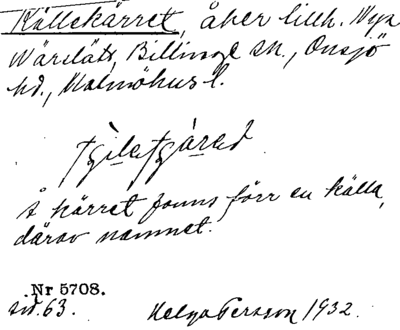 Källekärret, åker lillh. Nya
Wäralöts, Billinge sn., Onsjö
hd., Malmöhus l.
I kärret fanns förr en källa,
därav namnet.
Nr 5708.
sid. 63. Helga Persson 1932.